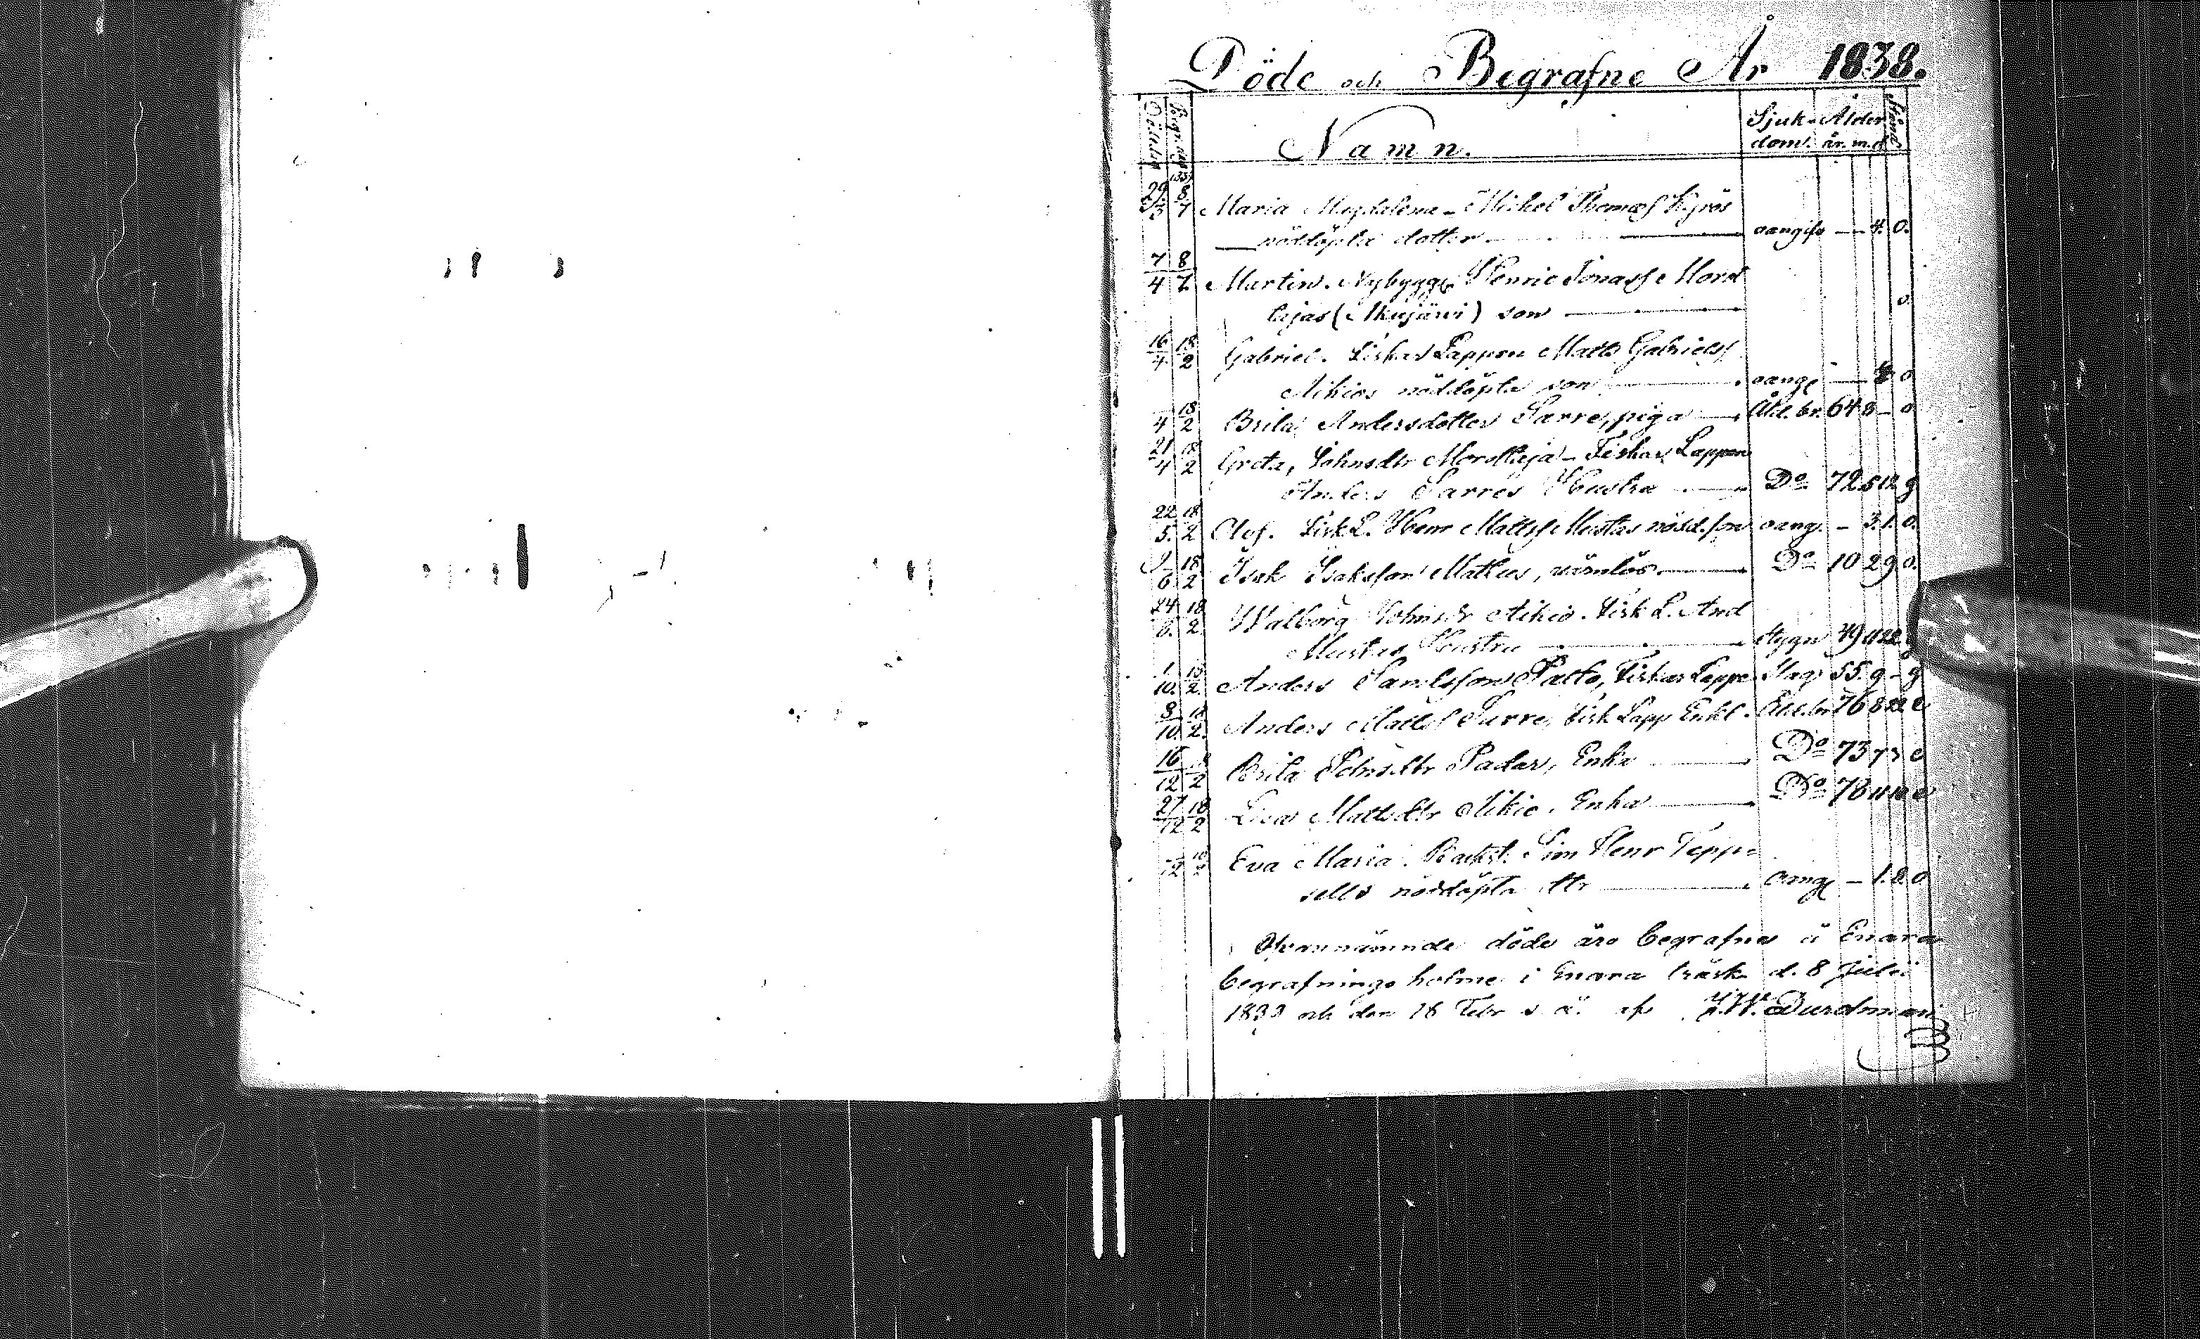 Döde och Begrafne År 1838.
Namn. Sjukdom. Ålder år. m. d.
29/3 8/7 Maria Magdalena - Michel Thomas Kyrös
nöddöpta dotter oangifv — 4. 0.
7/4 8/7 Martin. Nybygg. Henric Jonass Morot
tajas (Akujärvi) son o.
16/4 18/2 Gabriel. Fiskar Lappen Matts Gabrielss
Aikios nöddöpta son oang — 0
4 18/2 Brita Andersdotter Sarre, piga Åld.br. 64 8 - o
21/4 18/2 Greta, Johnsdtr Morottaja - Fiskar Lappen
Anders Sarres Hustru Do 72 g
22/5. 18/2 Olof. Fisk L. Henr Mattss Mustas nödd. son oang. - 3. 1. 0.
6. 18/2 Isak Isaksson Mattus, värnlös Do 10 2 9 o.
24/6. 18/2. Walborg Johnsdr Aikio. Fisk L. And
Mustas Hustru Stygn 49
1/10. 18/2. Anders Samlsson Paltto, Fiskar Lapp 55. 9 - g
8/10. 18/2. Anders Mattss Sarre, Fisk Lapp Enkl. Åld.br 76 e
16/12 18/2 Brita Johnsdtr Padar, Enka Do 73 7 3 e
27/12 18/2 Lisa Mattsdtr Aikio. Enka Do 78 e
12 18/2 Eva Maria. Backst. Sim Henr Tepp-
sells nöddöpta dtr oang — 1. 8. 0
Ofvannämnde döde äro begrafna å Enara
begrafnings holme i Enara träsk d. 8 Julii
1838 och den 18 Febr s. å. af J.W. Durchman